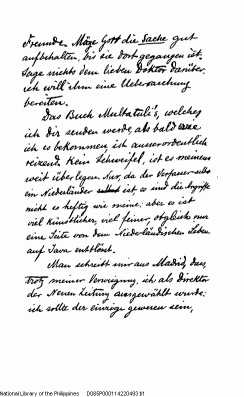 Freunde. Möge Gott die Sache gut
aufhalten, bis sie dort gegangen ist.
Sage nichts dem lieben Doktor darüber,
ich will ihm eine Ueberraschung
bereiten.
Das Buch Multatuli's, welches
ich dir senden werde, als bald
ich es bekommen, ist ausserordentlich
reizend. Kein Zweifel, ist es meinem
weit überlegen. Nur, da der Verfasser
ein Niederländer ist, so sind die Angriffe
nicht so heftig wie meine; aber es ist
viel künstlicher, viel feiner, obgleich nur
eine Seite von dem Niederländischen Leben
auf Java entblösst.
Man schreibt mir aus Madrid, dass,
trotz meiner Verneigung, ich als Direktor
der Neuen Zeitung ausgewählt wurde;
ich sollte der einzige gewesen sein,
National Library of the Philippines D085P000114220493.tif